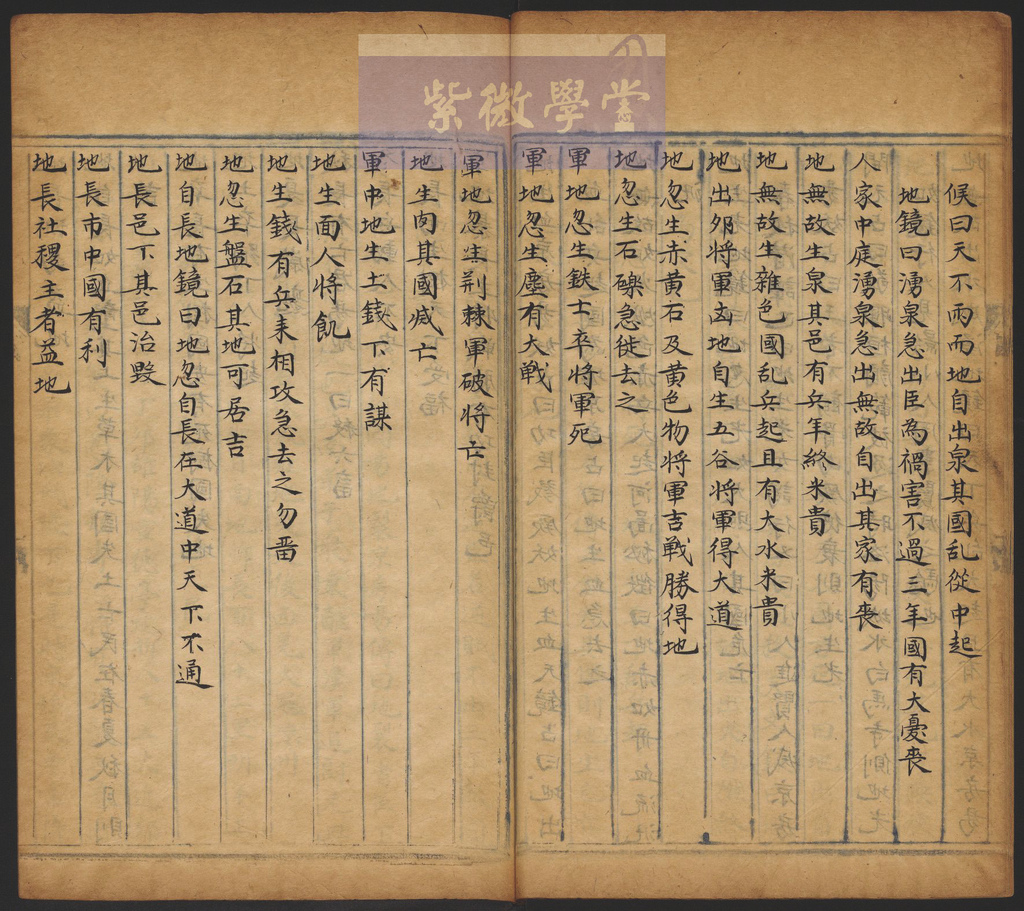 紫微學堂
候曰天不雨而地自出泉其國乱從中起
地鏡曰湧泉急出臣為禍害不過三年國有大憂喪
人家中庭湧泉急出無故自出其家有喪
地無故生泉其邑有兵年終米貴
地無故生雜色國乱兵起且有大水米貴
地出夘將軍凶地自生五谷將軍得大道
地忽生赤黃石及黃色物將軍吉戦勝得地
地忽生石礫急徙去之
軍地忽生鉄士卒將軍死
軍地忽生塵有大戦
軍地忽生荆棘軍破將亡
地生肉其國烕亡
軍中地生土錢下有謀
地生面人將飢
地生錢有兵来相攻急去之勿畱
地忽生盤石其地可居吉
地自長地鏡曰地忽自長在大道中天下不通
地長邑下其邑治毀
地長市中國有利
地長社稷主者益地